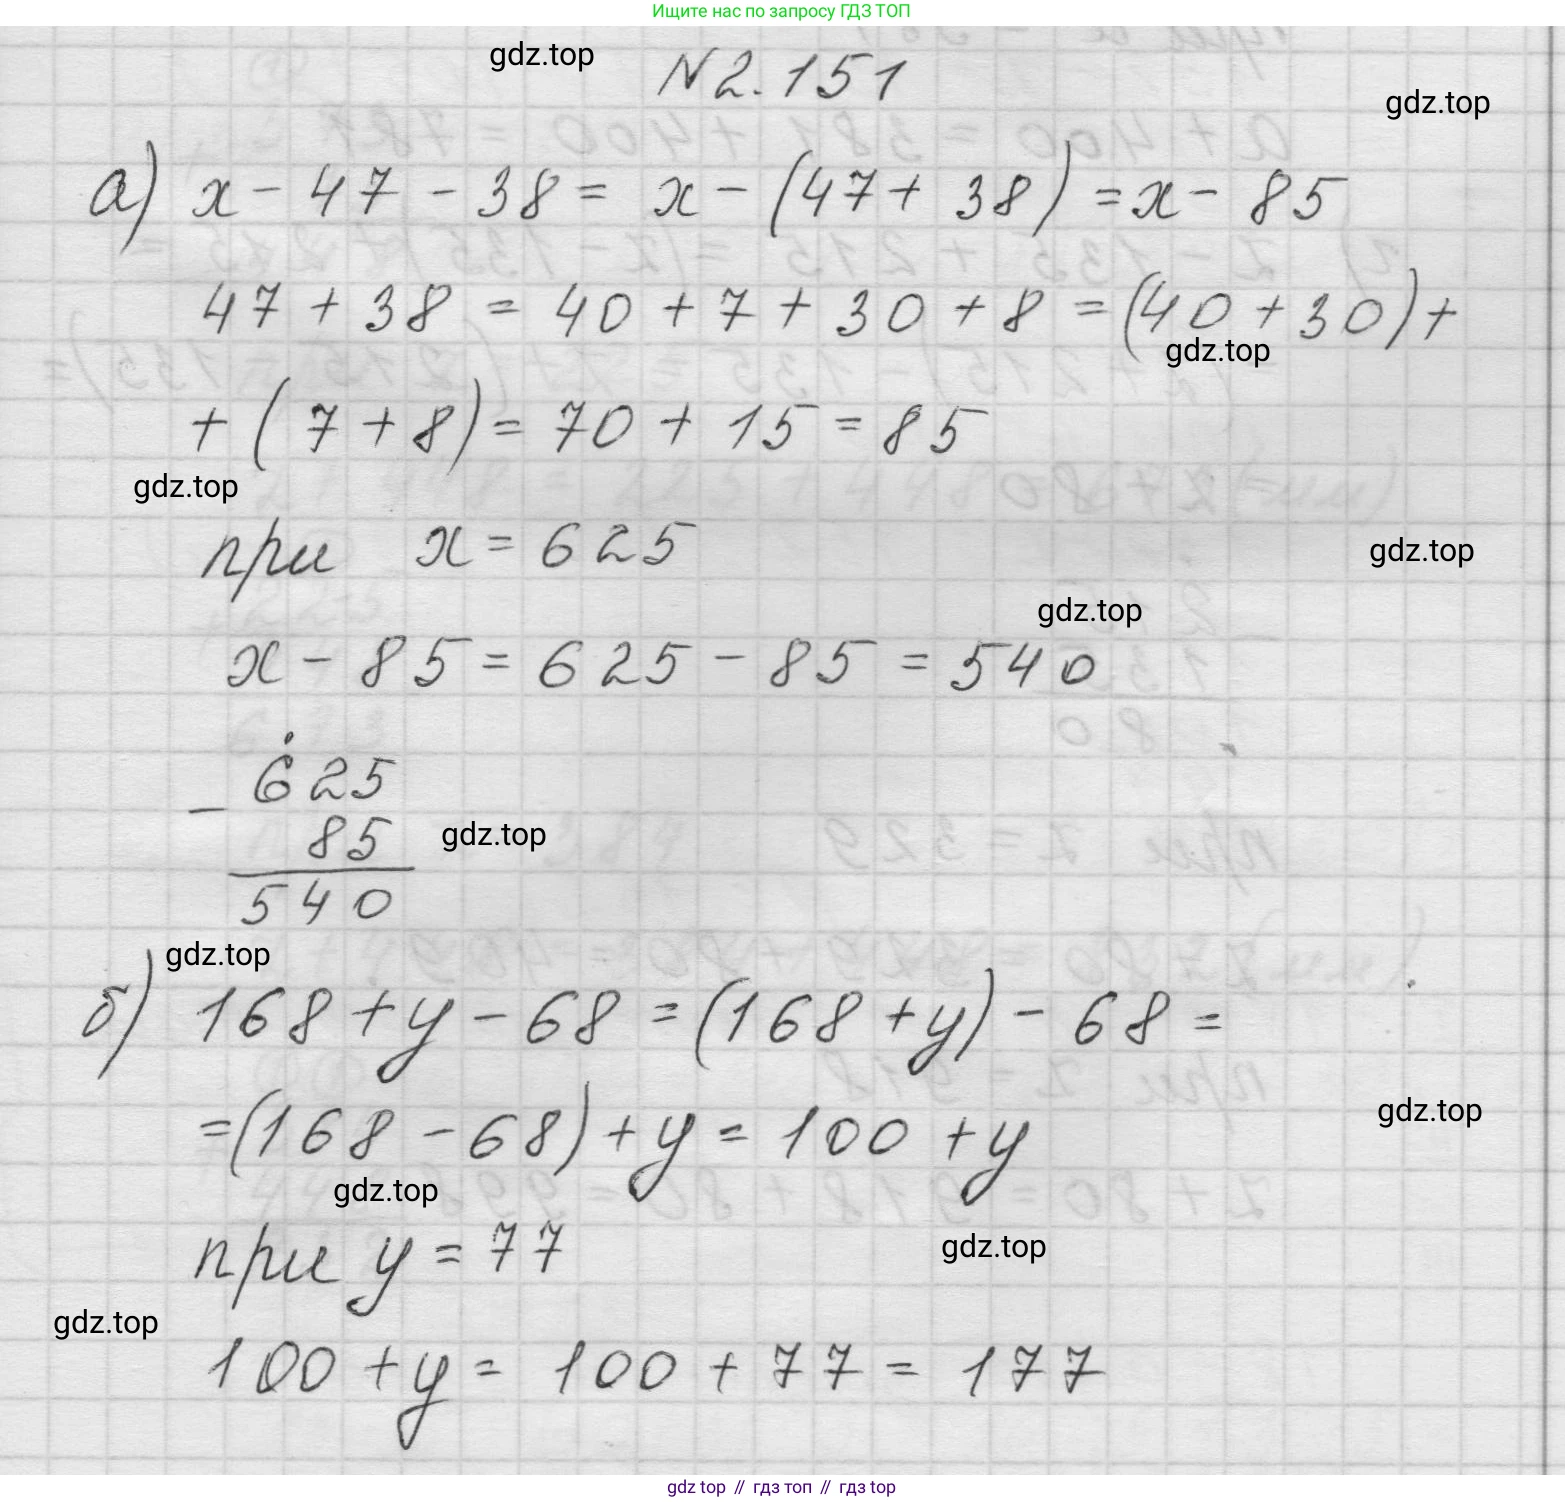 Ищите нас по запросу ГДЗ ТОП
gdz.top
N 2.151
gdz.top
а) x - 47 - 38 = x - (47 + 38) = x - 85
47 + 38 = 40 + 7 + 30 + 8 = (40 + 30) +
gdz.top
+ (7 + 8) = 70 + 15 = 85
gdz.top
при x = 625
gdz.top
gdz.top
x - 85 = 625 - 85 = 540
625
-
85
gdz.top
540
gdz.top
б) 168 + y - 68 = (168 + y) - 68 =
= (168 - 68) + y = 100 + y
gdz.top
gdz.top
при y = 77
gdz.top
gdz.top
100 + y = 100 + 77 = 177
gdz top // гдз топ // гдз top